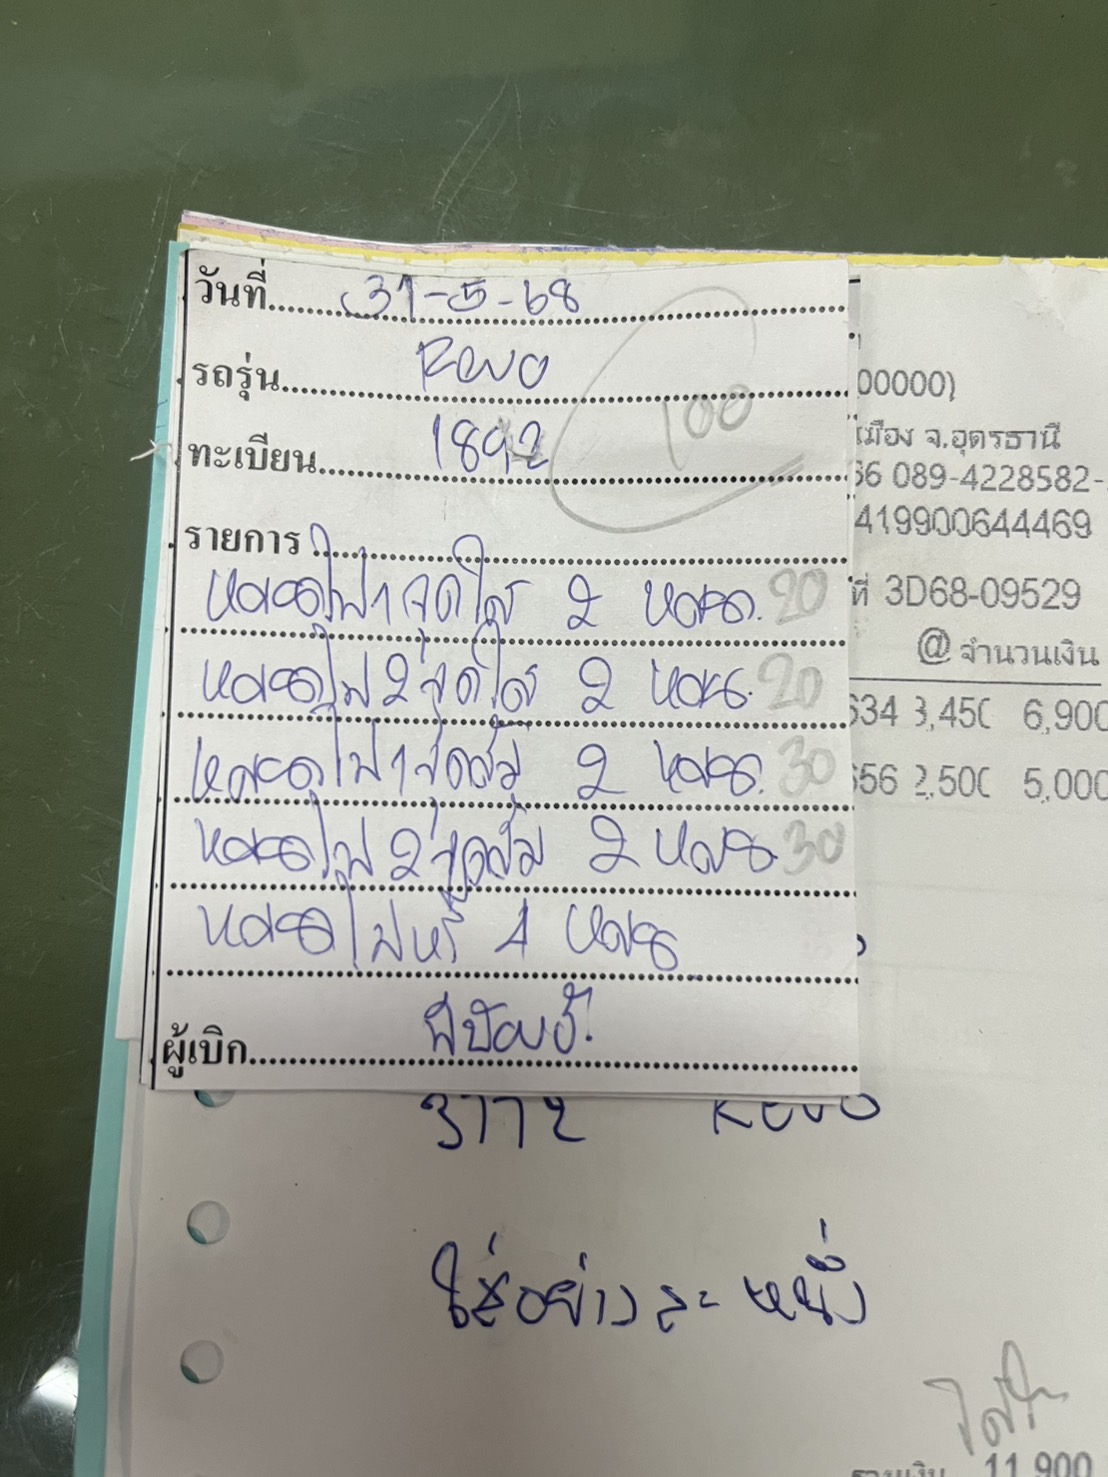 วันที่ 31-5-68
รถรุ่น Revo
100
ทะเบียน 1892
รายการ
หลอดไฟ 1 จุดใส 2 หลอด. 20
หลอดไฟ 2 จุดใส 2 หลอด. 20
หลอดไฟ 1 จุดส้ม 2 หลอด. 30
หลอดไฟ 2 จุดส้ม 2 หลอด. 30
หลอดไฟหรี่ 4 หลอด
ผู้เบิก
00000)
เมือง จ.อุดรธานี
66 089-4228582-
419900644469
ที่ 3D68-09529
@ จำนวนเงิน
634 3,450 6,900
656 2,500 5,000
3772 Revo
ใส่อย่างละหนึ่ง
รวมเงิน 11,900